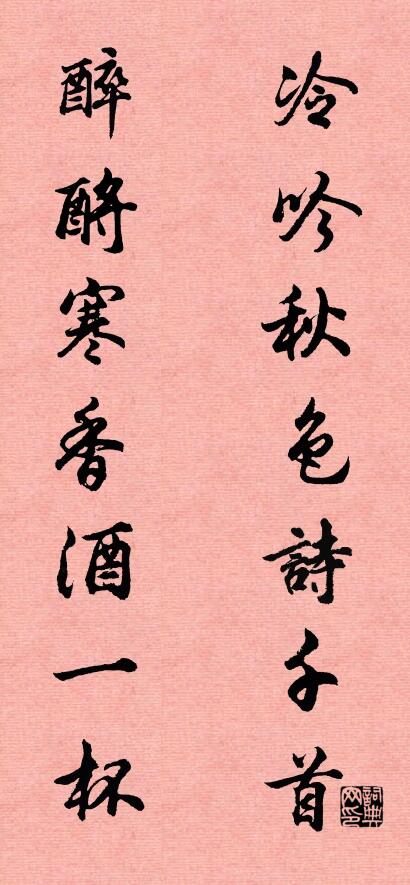 冷吟秋色詩千首
醉酹寒香酒一杯
詞典网印